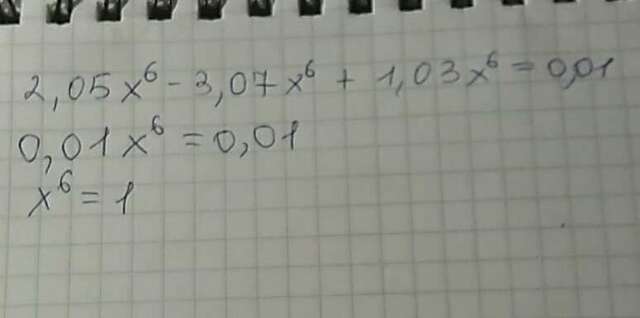 2,05x⁶ - 3,07x⁶ + 1,03x⁶ = 0,01
0,01x⁶ = 0,01
x⁶ = 1